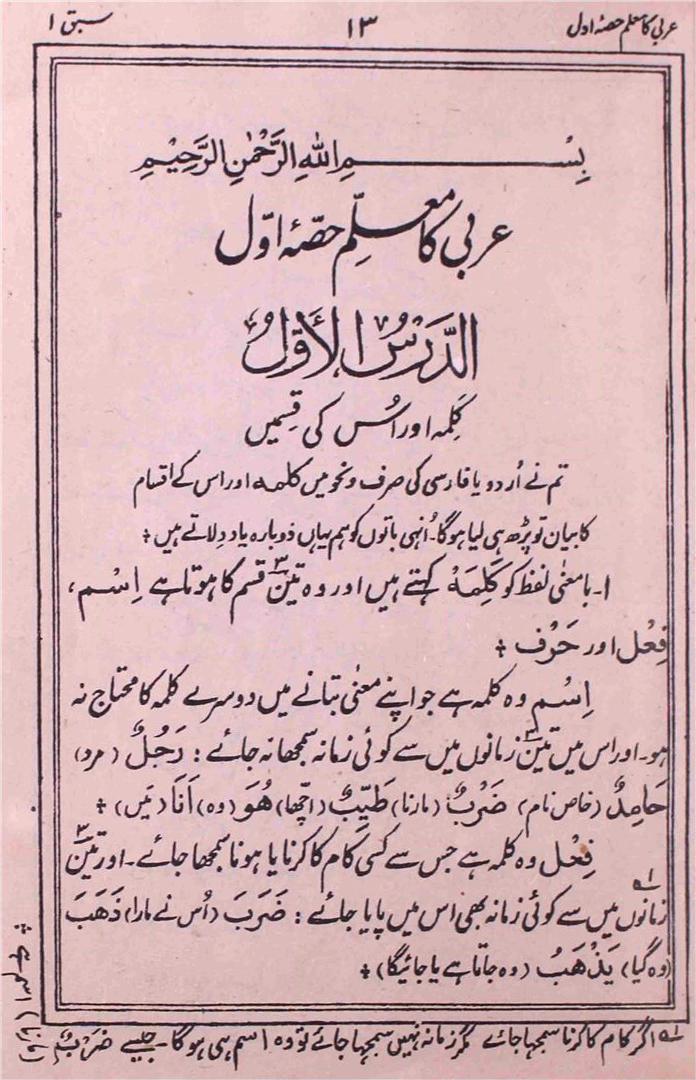 عربی کا معلم حصۂ اول ۱۳ سبق ۱
بِسْمِ اللهِ الرَّحْمٰنِ الرَّحِيْمِ
عربی کا معلّم حصّۂ اوّل
الدَّرْسُ الْأَوَّلُ
کَلِمہ اور اُس کی قِسمیں
تم نے اُردو یا فارسی کی صرف و نحو میں کلمہ اور اس کے اقسام
کا بیان تو پڑھ ہی لیا ہوگا۔ اُنہی باتوں کو ہم یہاں دوبارہ یاد دلاتے ہیں ÷
۱۔ بامعنٰی لفظ کو کَلِمَہْ کہتے ہیں اور وہ تین۳ قسم کا ہوتا ہے اِسْم،
فِعْل اور حَرْف ÷
اِسْم وہ کلمہ ہے جو اپنے معنٰی بتانے میں دوسرے کلمہ کا محتاج نہ
ہو۔ اور اس میں تین۳ زمانوں میں سے کوئی زمانہ سمجھا نہ جائے : رَجُلٌ (مرد)
حَامِدٌ (خاص نام) ضَرْبٌ (مارنا) طَیِّبٌ (اچھا) هُوَ (وہ) اَنَا (میں) ÷
فِعْل وہ کلمہ ہے جس سے کسی کام کا کرنا یا ہونا سمجھا جائے۔ اور تین۳
زمانوں میں سے کوئی زمانہ بھی اس میں پایا جائے ؎۱ : ضَرَبَ (اُس نے مارا) ذَهَبَ
(وہ گیا) یَذْهَبُ (وہ جاتا ہے یا جائیگا) ÷
؎۱ اگر کام کا کرنا سمجھا جائے مگر زمانہ نہیں سمجھا جائے تو وہ اسم ہی ہوگا۔ جیسے ضَرْبٌ